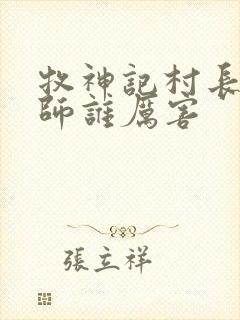 牧神記村長
師誰厲害
張立祥